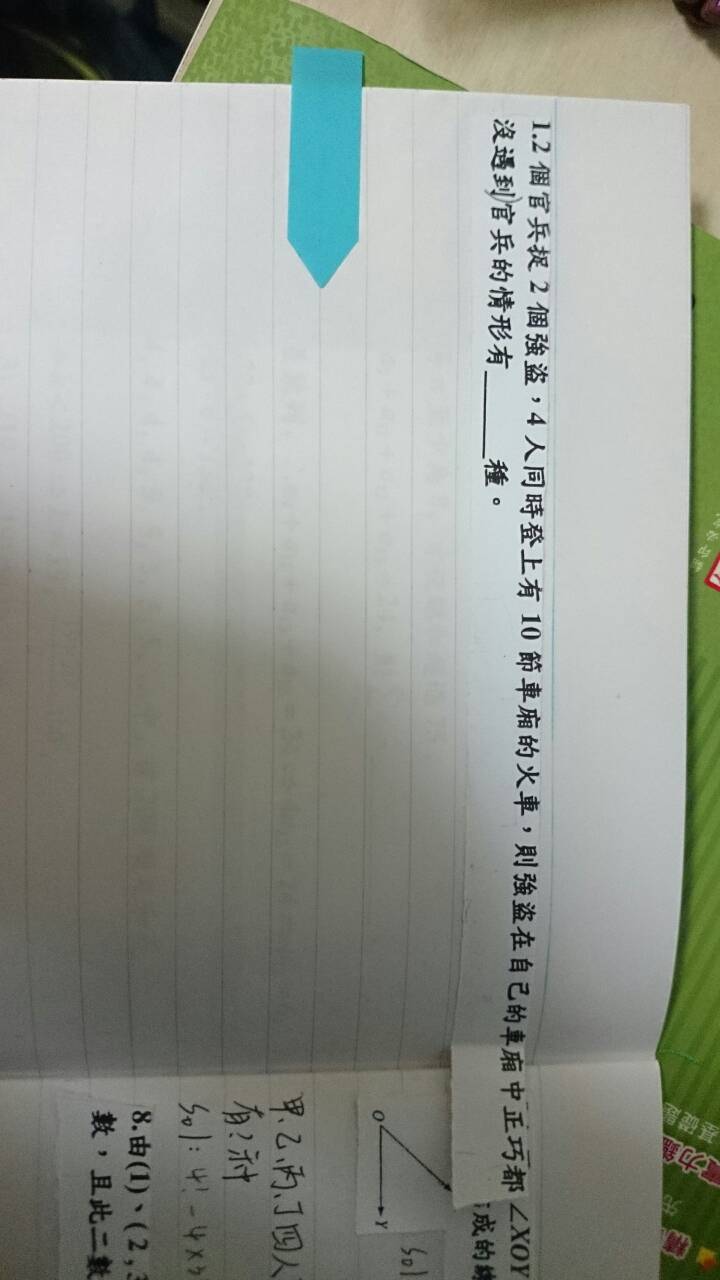 1.2個官兵捉2個強盜，4人同時登上有10節車廂的火車，則強盜在自己的車廂中正巧都
沒遇到官兵的情形有______種。
∠XOY
成的
O
Y
sol
甲.乙.丙.丁四人
有?种
sol: 4! - 4×3
8.由(1)、(2,3
數，且此二數